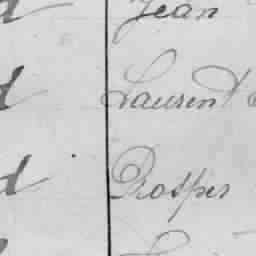 d Jean
d Laurent
d Prosper